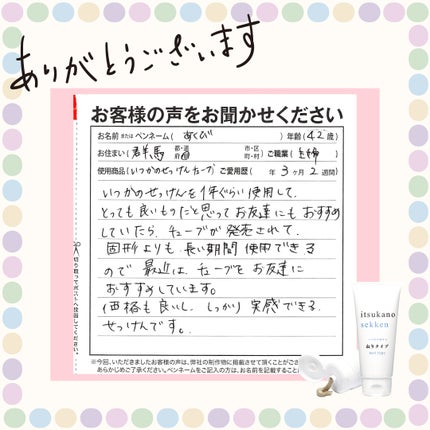 ありがとうございます
お客様の声をお聞かせください
お名前 または ペンネーム ( あくび ) 年齢 ( 42 歳 )
お住まい ( 群馬 都・道 府・県 市・区 町・村 ) ご職業 ( 主婦 )
使用商品 ( いつかのせっけんチューブ ) ご愛用歴 ( 年 3 ヶ月 2 週間 )
いつかのせっけんを1年ぐらい使用して、
とっても良いものだと思ってお友達にもおすすめ
していたら、チューブが発売されて、
固形よりも長い期間使用できる
ので最近は、チューブをお友達に
おすすめしています。
価格も良いし、しっかり実感できる
せっけんです。
切り取ってポストへ投函してください。
※今回、いただきましたお客様の声は、弊社の制作物に掲載させて頂くことがござ
あらかじめご了承ください。ペンネームをご記入の方は、お名前を記載すること
itsukano
sekken
ねりタイプ